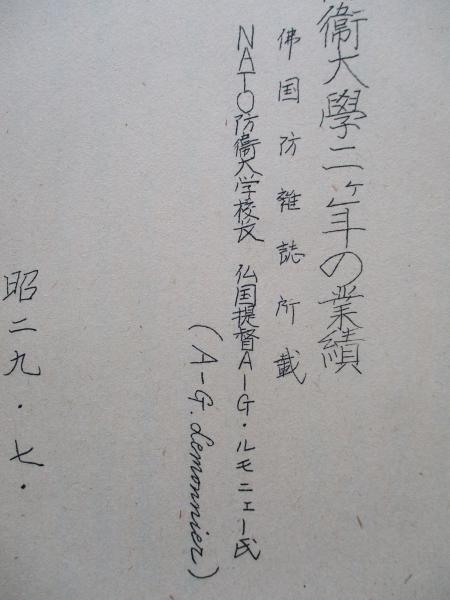 衞大學二ヶ年の業績
佛国防雑誌所載
NATO防衞大学校長 仏国提督A-G・ルモニエー氏
(A-G. Lemonnier)
昭二九・七・